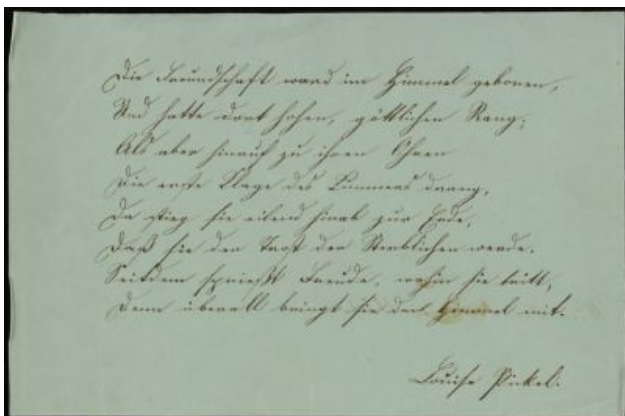 Die Freundschaft ward im Himmel geboren,
Und hatte dort hohen, göttlichen Rang;
Als aber hinauf zu ihren Ohren
Die erste Klage des Kummers drang,
Da stieg sie eilend hinab zur Erde,
Daß sie der Trost der Sterblichen werde.
Seitdem sprießt Freude, wohin sie tritt,
Denn überall bringt sie den Himmel mit.
Louise Pickel.